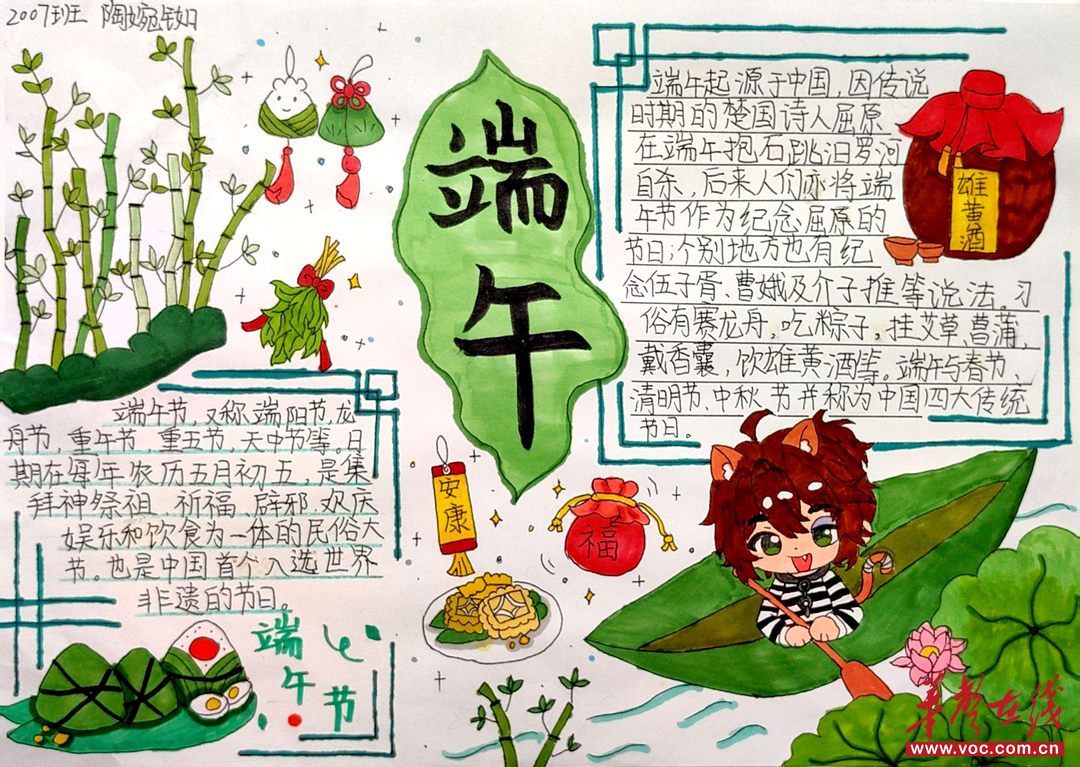 2007班 陶婉如
端午
端午起源于中国,因传说
时期的楚国诗人屈原
在端午抱石跳汨罗河
自杀,后来人们亦将端
午节作为纪念屈原的
节日;个别地方也有纪
念伍子胥、曹娥及介子推等说法。习
俗有赛龙舟,吃粽子,挂艾草、菖蒲,
戴香囊,饮雄黄酒等。端午与春节、
清明节、中秋节并称为中国四大传统
节日。
雄黄酒
端午节,又称端阳节、龙
舟节,重午节,重五节,天中节等。日
期在每年农历五月初五,是集
拜神祭祖 祈福、辟邪、欢庆
娱乐和饮食为一体的民俗大
节。也是中国首个入选世界
非遗的节日。
安康
福
端午节
华声在线
www.voc.com.cn